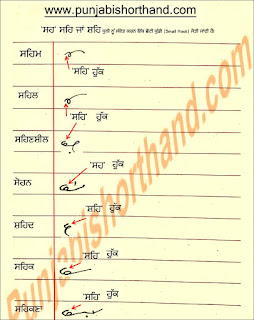 www.punjabishorthand.com
'ਸਹ' ਸਹਿ ਜਾਂ ਸ਼ਹਿ ਧੁਨੀ ਨੂੰ ਅੰਕਿਤ ਕਰਨ ਲਈ ਛੋਟੀ ਕੁੰਡੀ (Small Hook) ਜੋੜੀ ਜਾਂਦੀ ਹੈ
ਸਹਿਮ
'ਸਹਿ' ਹੁੱਕ
ਸਹਿਲ
'ਸਹਿ' ਹੁੱਕ
ਸਹਿਣਸ਼ੀਲ
'ਸਹ' ਹੁੱਕ
ਸੋਹਨ
'ਸ਼ਹਿ' ਹੁੱਕ
ਸ਼ਹਿਦ
'ਸਹਿ' ਹੁੱਕ
ਸਹਿਕ
'ਸਹਿ' ਹੁੱਕ
ਸਹਿਕਣਾ
Punjabishorthand.com